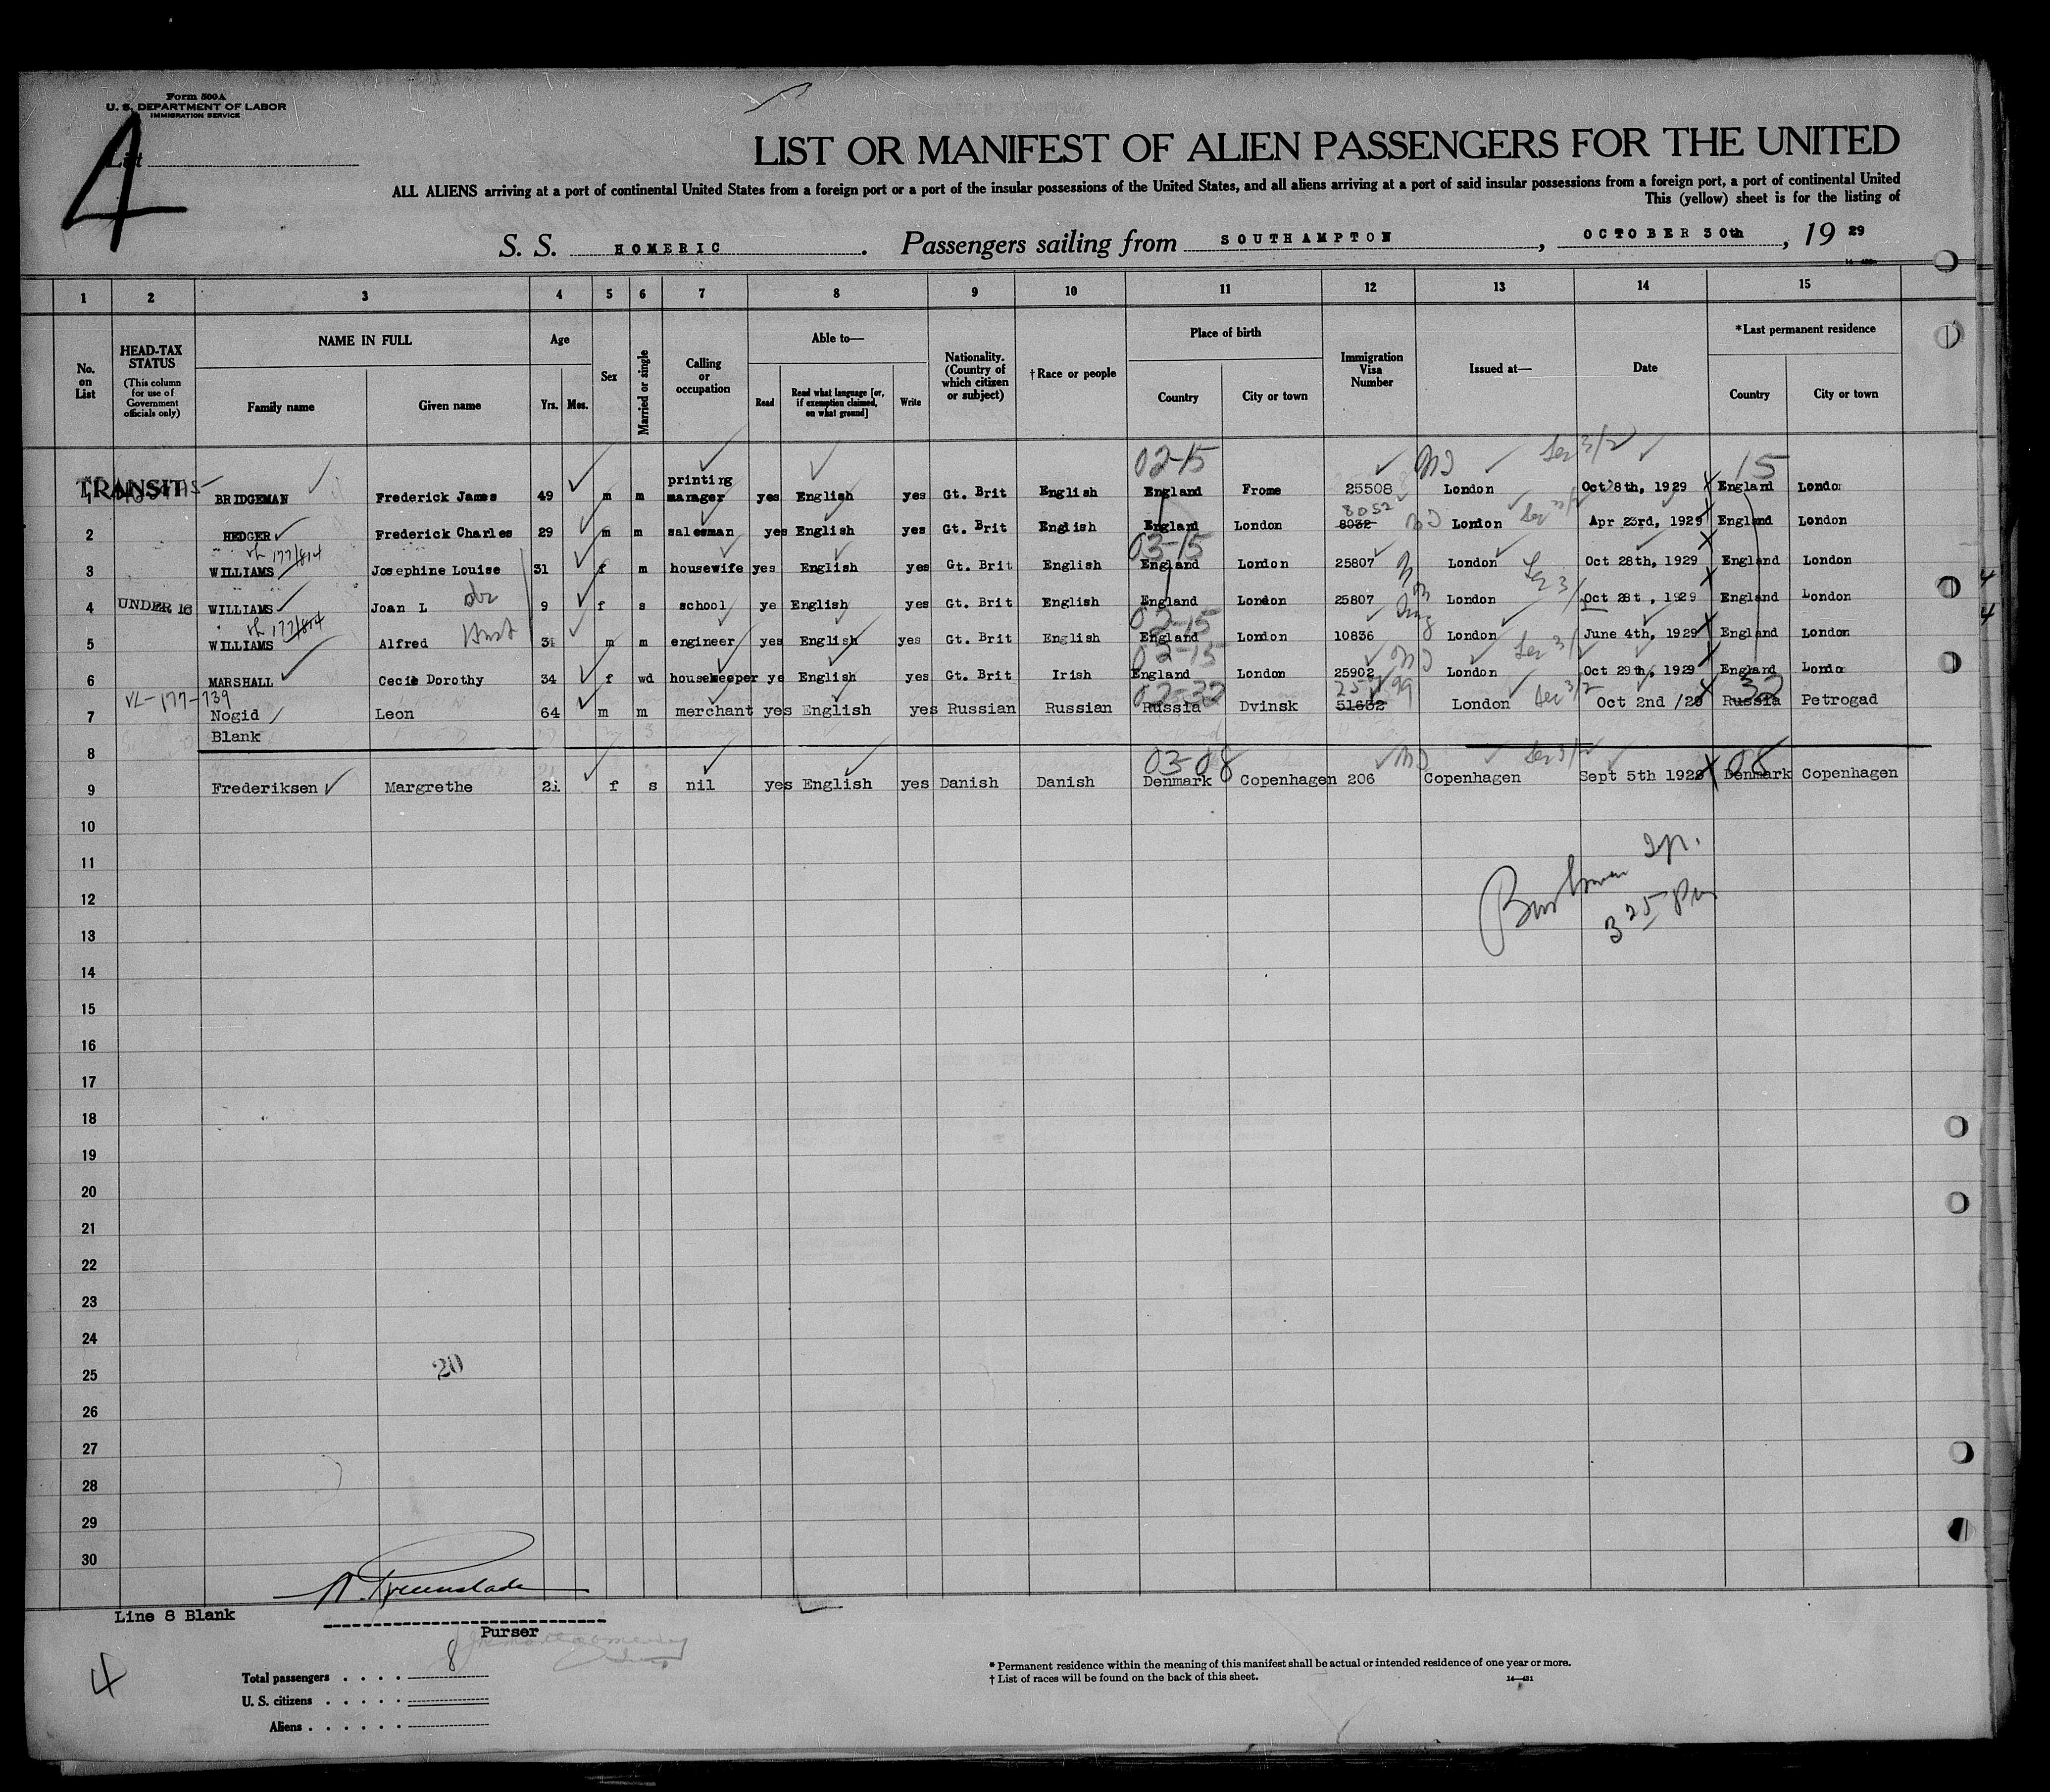 Form 500A
U. S. DEPARTMENT OF LABOR
IMMIGRATION SERVICE
4
List
LIST OR MANIFEST OF ALIEN PASSENGERS FOR THE UNITED
ALL ALIENS arriving at a port of continental United States from a foreign port or a port of the insular possessions of the United States, and all aliens arriving at a port of said insular possessions from a foreign port, a port of continental United
This (yellow) sheet is for the listing of
S. S. HOMERIC. Passengers sailing from SOUTHAMPTON, OCTOBER 30th, 19 29
1 2 3 4 5 6 7 8 9 10 11 12 13 14 15
No. on List
HEAD-TAX STATUS
(This column for use of Government officials only)
NAME IN FULL
Family name Given name
Age
Yrs. Mos.
Sex
Married or single
Calling or occupation
Able to—
Read Read what language [or, if exemption claimed, on what ground] Write
Nationality. (Country of which citizen or subject)
†Race or people
Place of birth
Country City or town
Immigration Visa Number
Issued at—
Date
*Last permanent residence
Country City or town
02-15 15
1 TRANSIT BRIDGEMAN Frederick James 49 m m printing manager yes English yes Gt. Brit English England Frome 25508 London Oct 8th, 1929 England London
8052
2 HEDGER Frederick Charles 29 m m salesman yes English yes Gt. Brit English England London 8032 London Apr 23rd, 1929 England London
177/814 03-15
3 WILLIAMS Josephine Louise 31 f m housewife yes English yes Gt. Brit English England London 25807 London Oct 28th, 1929 England London
4 UNDER 16 WILLIAMS Joan L 9 f s school ye English yes Gt. Brit English England London 25807 London Oct 28t, 1929 England London
177/814 02-15
5 WILLIAMS Alfred 31 m m engineer yes English yes Gt. Brit English England London 10836 London June 4th, 1929 England London
02-15
6 MARSHALL Cecie Dorothy 34 f wd housekeeper ye English yes Gt. Brit Irish England London 25902 London Oct 29th, 1929 England Londo
VL-177-739 02-32 32
7 Nogid Leon 64 m m merchant yes English yes Russian Russian Russia Dvinsk 51632 London Oct 2nd /29 Russia Petrogad
8 Blank
03-08 08
9 Frederiksen Margrethe 21 f s nil yes English yes Danish Danish Denmark Copenhagen 206 Copenhagen Sept 5th 1929 Denmark Copenhagen
10
11
12
3 25 pm
13
14
15
16
17
18
19
20
21
22
23
24
20
25
26
27
28
29
30
Line 8 Blank
Purser
4
Total passengers . . . . 8
U. S. citizens . . . . .
Aliens . . . . . .
* Permanent residence within the meaning of this manifest shall be actual or intended residence of one year or more.
† List of races will be found on the back of this sheet.
14—431